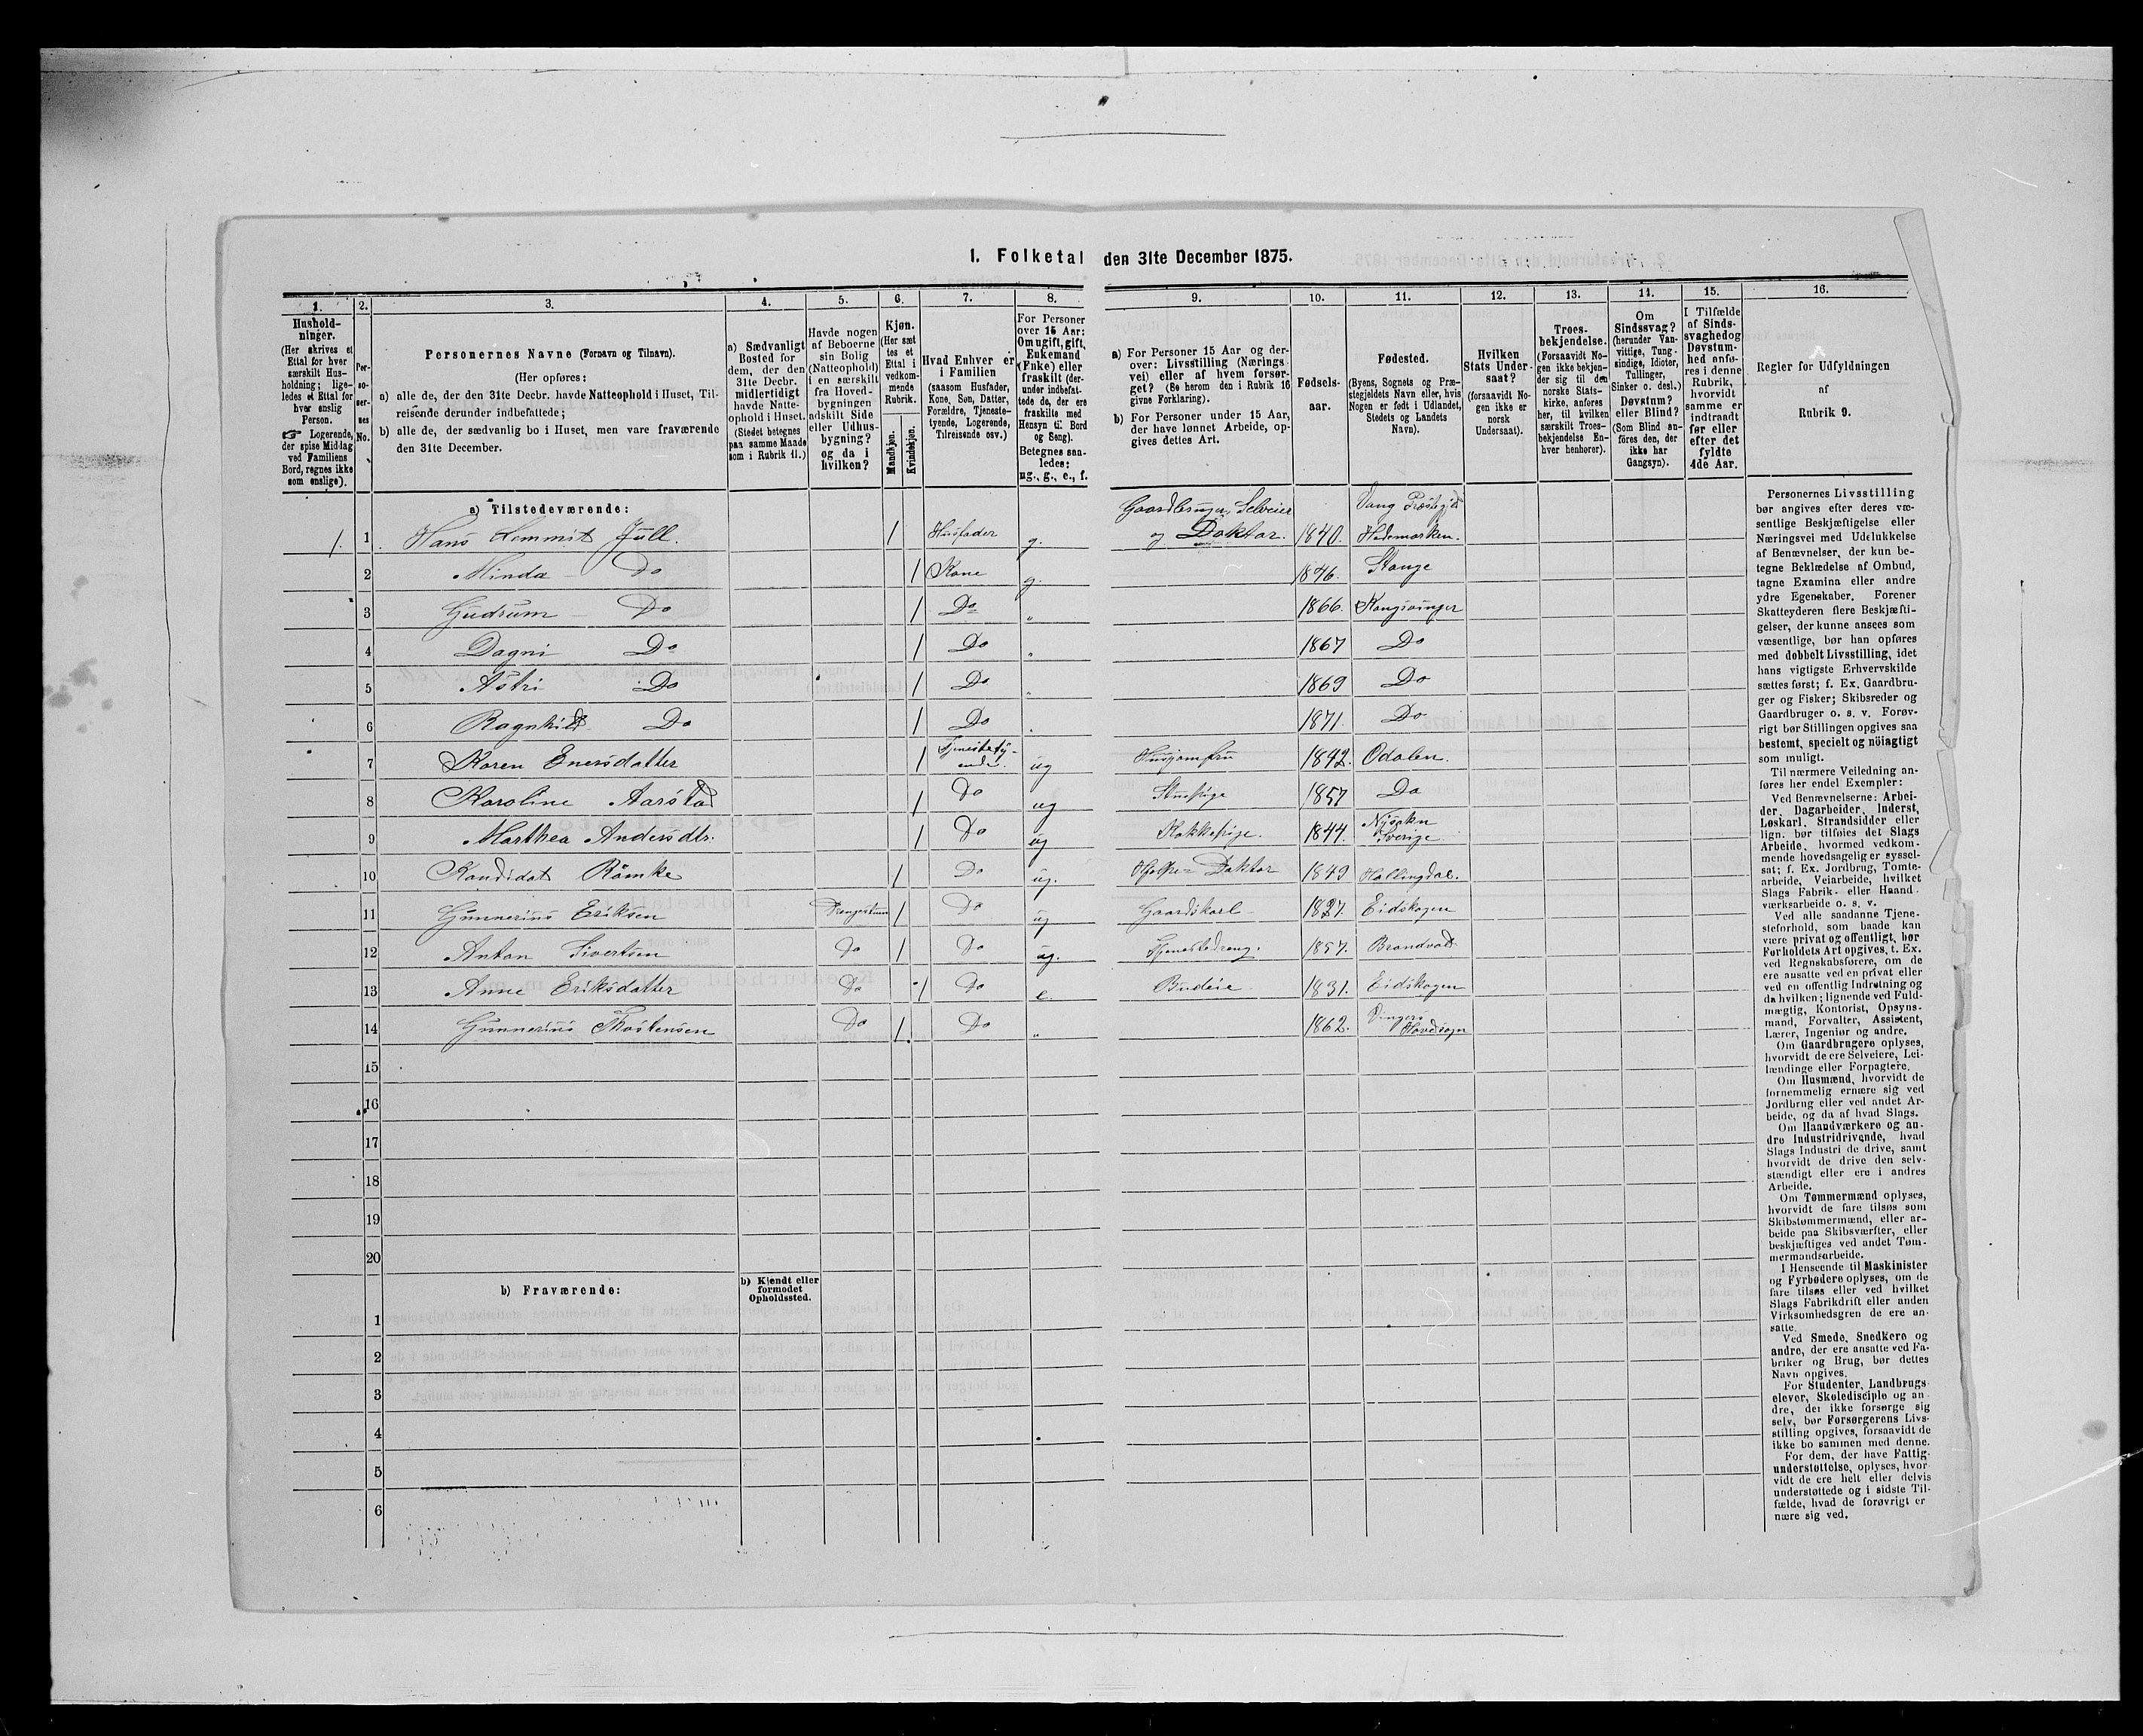 1. Folketal den 31te December 1875.
1. 2. 3. 4. 5. 6. 7. 8. 9. 10. 11. 12. 13. 14. 15. 16.
Hushold-
ninger.
(Her skrives et
Ettal for hver
særskilt Hus-
holdning; lige-
ledes et Ettal for
hver enslig
Person.
☞ Logerende,
der spise Middag
ved Familiens
Bord, regnes ikke
som enslige).
Per-
so-
ner-
nes
No.
Personernes Navne (Fornavn og Tilnavn).
(Her opføres:
a) alle de, der den 31te Decbr. havde Natteophold i Huset, Til-
reisende derunder indbefattede;
b) alle de, der sædvanlig bo i Huset, men vare fraværende
den 31te December.
a) Sædvanligt
Bosted for
dem, der den
31te Decbr.
midlertidigt
havde Natte-
ophold i Huset.
(Stedet betegnes
paa samme Maade
som i Rubrik 11.)
Havde nogen
af Beboerne
sin Bolig
(Natteophold)
i en særskilt
fra Hoved-
bygningen
adskilt Side
eller Udhus-
bygning?
og da i
hvilken?
Kjøn.
(Her sæt
tes et
Ettal i
vedkom-
mende
Rubrik.
Mandkjøn.
Kvindekjøn.
Hvad Enhver er
i Familien
(saasom Husfader,
Kone, Søn, Datter,
Forældre, Tjeneste-
tyende, Logerende,
Tilreisende osv.)
For Personer
over 15 Aar:
Om ugift, gift,
Enkemand
(Enke) eller
fraskilt (der-
under indbefat-
tede de, der ere
fraskilte med
Hensyn til Bord
og Seng).
Betegnes saa-
ledes:
ug., g., e., f.
a) For Personer 15 Aar og der-
over: Livsstilling (Nærings-
vei) eller af hvem forsør-
get? (Se herom den i Rubrik 16
givne Forklaring).
b) For Personer under 15 Aar,
der have lønnet Arbeide, op-
gives dettes Art.
Fødsels-
aar.
Fødested.
(Byens, Sognets og Præ-
stegjeldets Navn eller, hvis
Nogen er født i Udlandet,
Stedets og Landets
Navn).
Hvilken
Stats Under-
saat?
(forsaavidt No-
gen ikke er
norsk
Undersaat).
Troes-
bekjendelse.
(Forsaavidt No-
gen ikke bekjen-
der sig til den
norske Stats-
kirke, anføres
her, til hvilken
særskilt Troes-
bekjendelse En-
hver henhører).
Om
Sindssvag?
(herunder Van-
vittige, Tung-
sindige, Idioter,
Tullinger,
Sinker o. desl.)
Døvstum?
eller Blind?
(Som Blind an-
føres den, der
ikke har
Gangsyn).
I Tilfælde
af Sinds-
svaghed og
Døvstum-
hed anfø-
res i denne
Rubrik,
hvorvidt
samme er
indtraadt
før eller
efter det
fyldte
4de Aar.
Regler for Udfyldningen
af
Rubrik 9.
a) Tilstedeværende:
1. 1 Hans Lemmit Jull. 1 Husfader g. Gaardbruger, Selveier og Doktor. 1840. Vang Hedemarken.
2 Minda Do 1 Kone g. 1846. Stange
3 Gudrum Do 1 Do " 1866. Kongsvinger
4 Dagni Do 1 Do " 1867 Do
5 Astri Do 1 Do " 1869 Do
6 Ragnhild Do 1 Do " 1871. Do
7 Karen Enersdatter 1 Tjenestety-ende. ug Husjomfru 1842. Odalen.
8 Karoline Aarstad 1 Do ug Stuepige 1857 Do
9 Marthea Andersdtr. 1 Do ug Kokkepige. 1844. Sverige.
10 Kandidat Römke 1 Do ug. Hjelpe= Doktor 1849 Hallingdal.
11 Gunnerius Eriksen Drengestuen 1 Do ug Gaardskarl 1827. Eidskogen
12 Anton Sivertsen Do 1 Do ug. Tjenestedreng. 1857. Brandvold
13 Anne Eriksdatter Do 1 Do e. Budeie 1831. Eidskogen
14 Gunnerius Thostensen Do 1 Do " 1862. Vingers Hovedsogn
15
16
17
18
19
20
b) Fraværende:
b) Kjendt eller
formodet
Opholdssted.
1
2
3
4
5
6
Personernes Livsstilling
bør angives efter deres væ-
sentlige Beskjæftigelse eller
Næringsvei med Udelukkelse
af Benævnelser, der kun be-
tegne Beklædelse af Ombud,
tagne Examina eller andre
ydre Egenskaber. Forener
Skatteyderen flere Beskjæfti-
gelser, der kunne ansees som
væsentlige, bør han opføres
med dobbelt Livsstilling, idet
hans vigtigste Erhvervskilde
sættes først; f. Ex. Gaardbru-
ger og Fisker; Skibsreder og
Gaardbruger o. s. v. Forøv-
rigt bør Stillingen opgives saa
bestemt, specielt og nöiagtigt
som muligt.
Til nærmere Veiledning an-
føres her endel Exempler:
Ved Benævnelserne: Arbei-
der, Dagarbeider, Inderst,
Løskarl, Strandsidder eller
lign. bør tilføies det Slags
Arbeide, hvormed vedkom-
mende hovedsagelig er syssel-
sat; f. Ex. Jordbrug, Tomte-
arbeide, Veiarbeide, hvilket
Slags Fabrik- eller Haand-
værksarbeide o. s. v.
Ved alle saadanne Tjene-
steforhold, som baade kan
være privat og offentligt, bør
Forholdets Art opgives, t. Ex.
ved Regnskabsførere, om de
ere ansatte ved en privat eller
ved en offentlig Indretning og
da hvilken; lignende ved Fuld-
mægtig, Kontorist, Opsyns-
mand, Forvalter, Assistent,
Lærer, Ingeniør og andre.
Om Gaardbrugere oplyses,
hvorvidt de ere Selveiere, Lei-
lændinge eller Forpagtere.
Om Husmænd, hvorvidt de
fornemmelig ernære sig ved
Jordbrug eller ved andet Ar-
beide, og da af hvad Slags.
Om Haandværkere og an-
dre Industridrivende, hvad
Slags Industri de drive, samt
hvorvidt de drive den selv-
stændigt eller ere i andres
Arbeide.
Om Tømmermænd oplyses,
hvorvidt de fare tilsøs som
Skibstømmermænd, eller ar-
beide paa Skibsværfter, eller
beskjæftiges ved andet Tøm-
mermandsarbeide.
I Henseende til Maskinister
og Fyrbødere oplyses, om de
fare tilsøs eller ved hvilket
Slags Fabrikdrift eller anden
Virksomhedsgren de ere an-
satte.
Ved Smede, Snedkere og
andre, der ere ansatte ved Fa-
briker og Brug, bør dettes
Navn opgives.
For Studenter, Landbrugs-
elever, Skoledisciple og an-
dre, der ikke forsørge sig
selv, bør Forsørgerens Livs-
stilling opgives, forsaavidt de
ikke bo sammen med denne.
For dem, der have Fattig-
understøttelse, oplyses, hvor-
vidt de ere helt eller delvis
understøttede og i sidste Til-
fælde, hvad de forøvrigt er
nære sig ved.